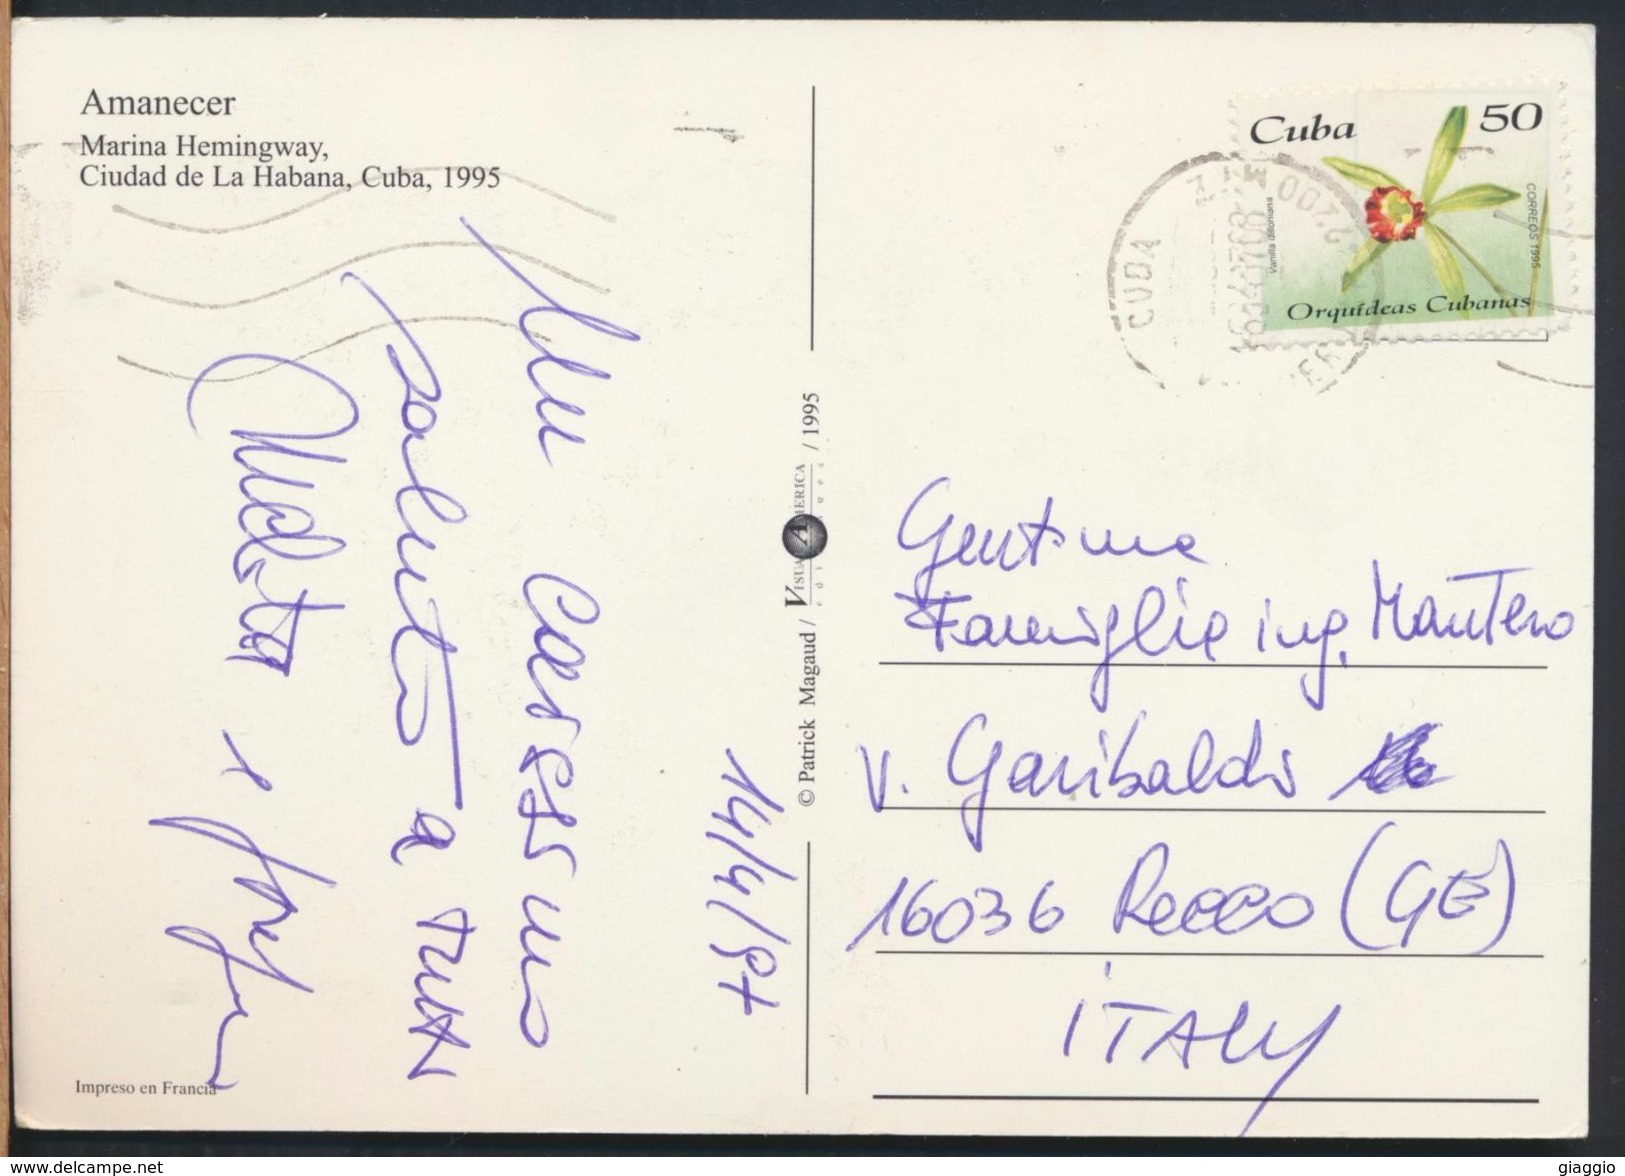 Amanecer
Marina Hemingway,
Ciudad de La Habana, Cuba, 1995
Un carissimo
saluto a tutti
e
14/4/97
Impreso en Francia
© Patrick Magaud / VISUAL AMERICA / 1995
Cuba 50
CORREOS 1995
Vanilla dilloniana
Orquídeas Cubanas
CUBA
Gent.ma
Famiglia ing. Mantero
V. Garibaldi
16036 Recco (GE)
ITALY
www.delcampe.net
giaggio